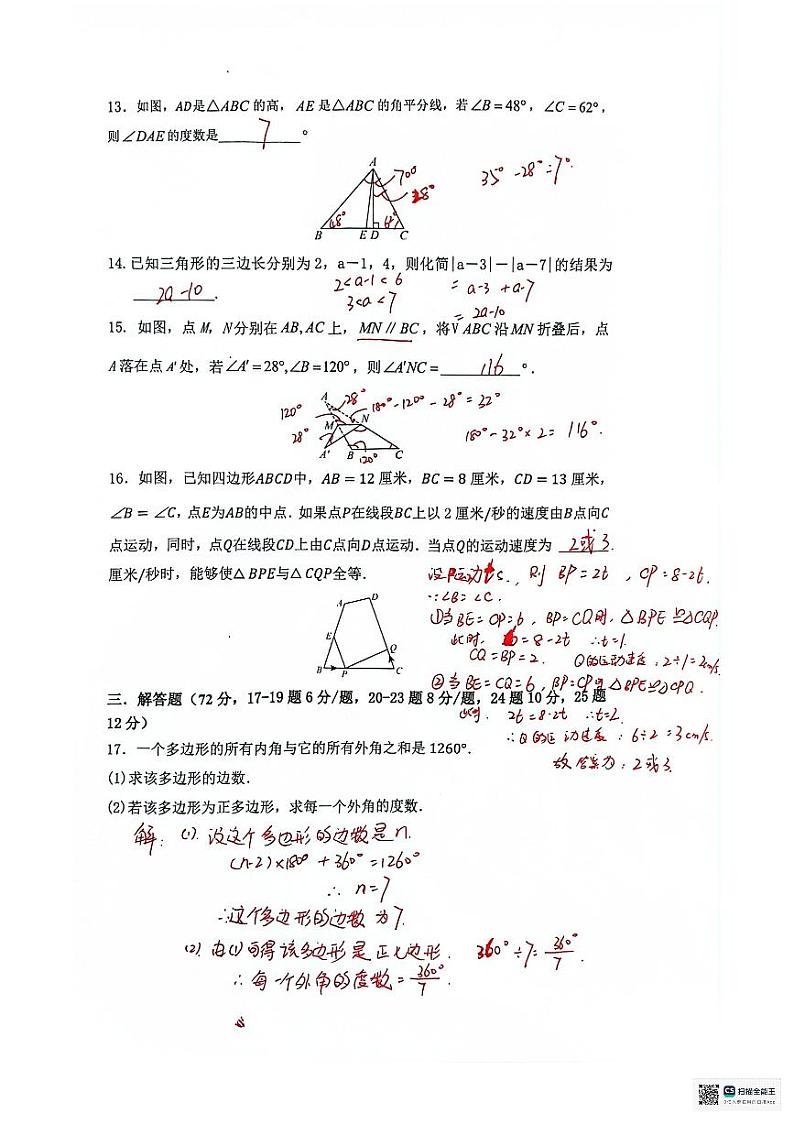 13. 如图，AD是△ABC 的高， AE 是△ABC 的角平分线，若∠B=48°，∠C=62°，
则∠DAE的度数是 7 °
A
70°
28°
35°-28°=7°
48°
62°
B E D C
14.已知三角形的三边长分别为 2，a－1，4，则化简|a－3|－|a－7|的结果为
2a-10.
2<a-1<6
3<a<7
= a-3 +a-7
= 2a-10
15. 如图，点 M，N分别在 AB,AC 上， MN∥BC，将V ABC 沿MN 折叠后，点
A落在点 A′ 处，若∠A′=28°,∠B=120°，则∠A′NC= 116 °.
A
28°
180°-120°-28°=32°
120°
M N
28°
180°-32°×2= 116°.
A′ B C
120°
16. 如图，已知四边形ABCD中，AB=12 厘米，BC=8 厘米，CD=13 厘米，
∠B= ∠C，点E为AB的中点．如果点P在线段BC上以 2 厘米/秒的速度由B点向C
点运动，同时，点Q在线段CD上由C点向D点运动．当点Q的运动速度为 2或3
厘米/秒时，能够使△BPE与△CQP全等．
设P运动ts. 则 BP=2t ，CP=8-2t.
∵∠B=∠C.
①当BE=CP=6，BP=CQ时，△BPE≌△CQP.
此时，6=8-2t ∴t=1.
CQ=BP=2. Q的运动速度：2÷1=2cm/s.
②当BE=CQ=6，BP=CP时△BPE≌△CPQ.
此时. 2t=8-2t ∴t=2.
∴Q的运动速度：6÷2=3cm/s.
故答案为：2或3.
A D
E
Q
B P C
三．解答题（72 分，17-19 题 6 分/题，20-23 题 8 分/题，24 题 10 分，25 题
12 分）
17．一个多边形的所有内角与它的所有外角之和是 1260°．
(1)求该多边形的边数．
(2)若该多边形为正多边形，求每一个外角的度数．
解：(1). 设这个多边形的边数是n.
(n-2)×180° +360°=1260°
∴ n=7
∴这个多边形的边数 为7.
(2). 由(1)可得该多边形是正七边形. 360°÷7=360°/7.
∴每一个外角的度数=360°/7.
CS 扫描全能王